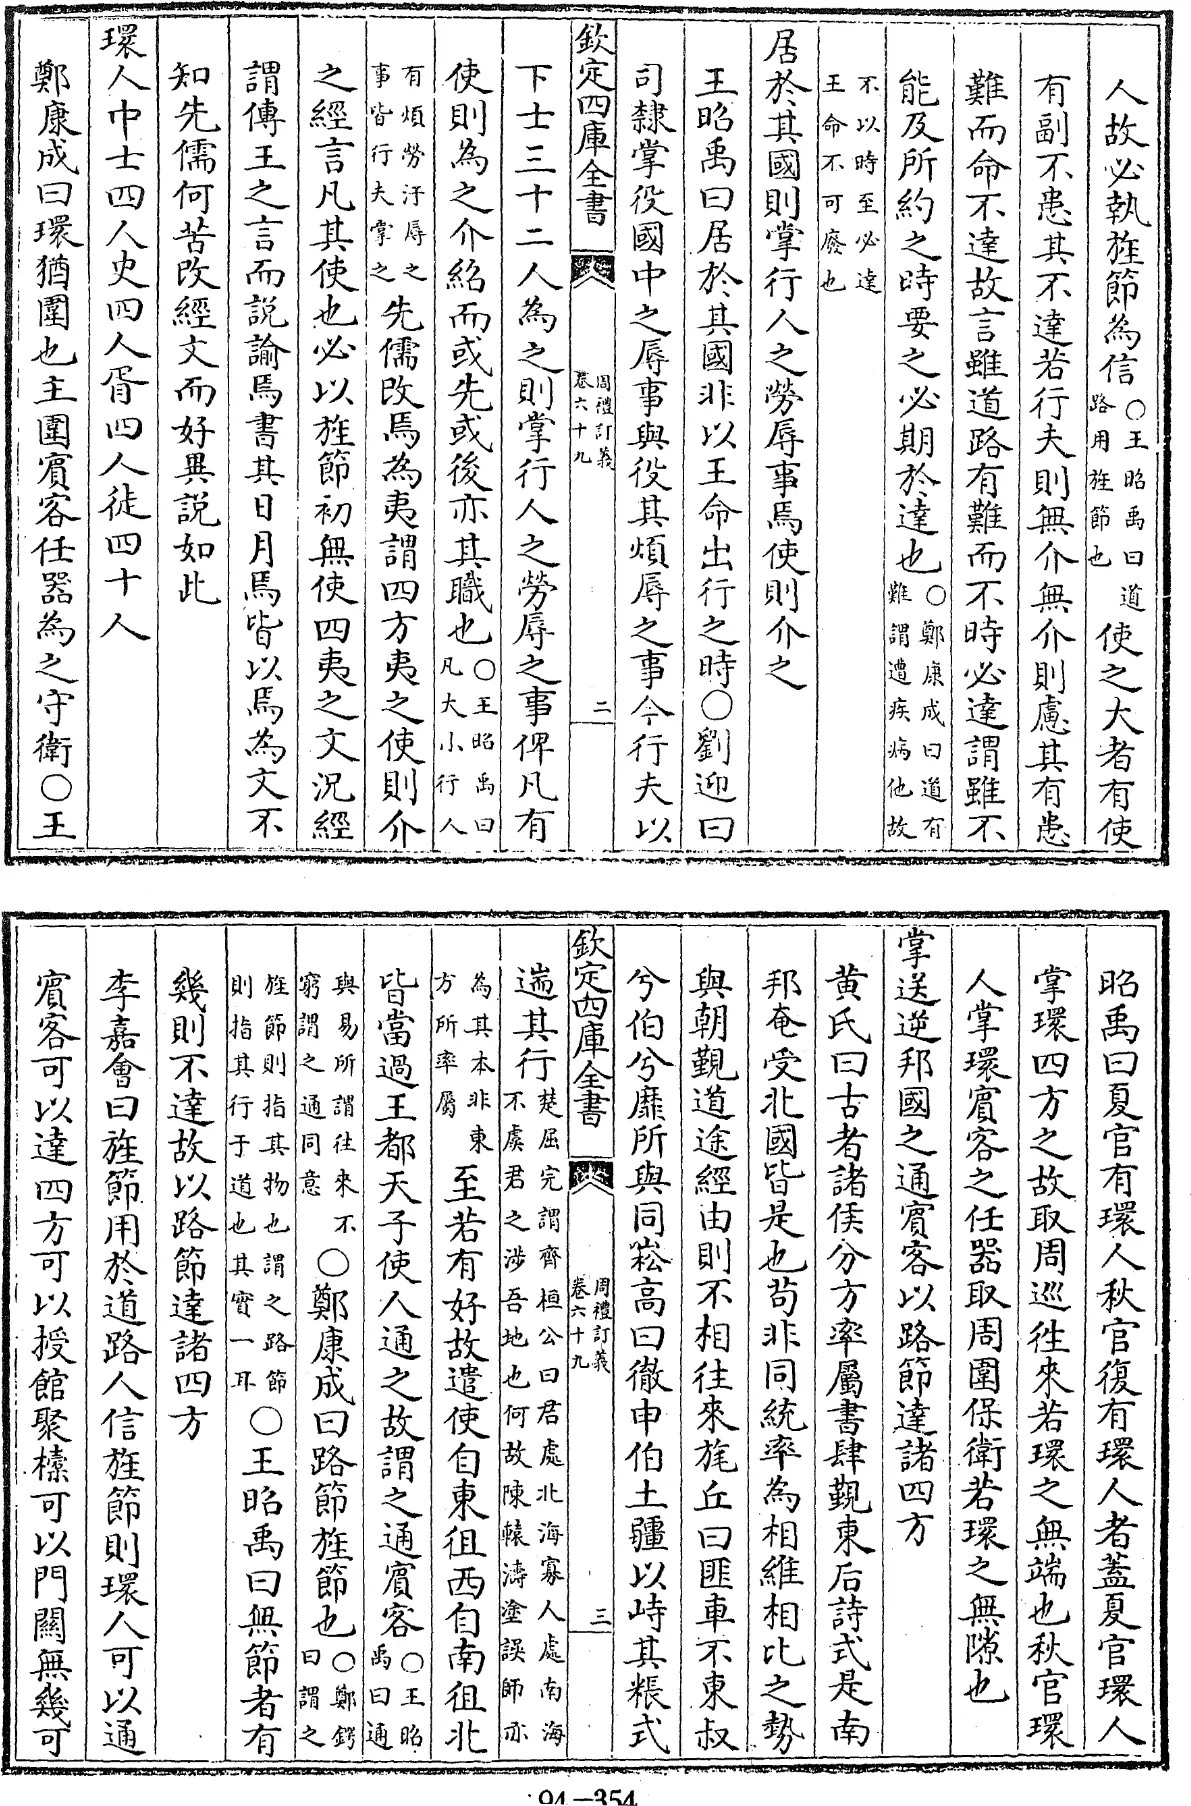 人故必執旌節為信○王昭禹曰道路用旌節也使之大者有使
有副不患其不達若行夫則無介無介則慮其有患
難而命不達故言雖道路有難而不時必達謂雖不
能及所約之時要之必期於達也○鄭康成曰道有難謂遭疾病他故
不以時至必達王命不可廢也
居於其國則掌行人之勞辱事焉使則介之
王昭禹曰居於其國非以王命出行之時○劉迎曰
司隸掌役國中之辱事與役其煩辱之事今行夫以
欽定四庫全書
周禮訂義
卷六十九
二
下士三十二人為之則掌行人之勞辱之事俾凡有
使則為之介紹而或先或後亦其職也○王昭禹曰凡大小行人
有煩勞汙辱之事皆行夫掌之先儒改焉為夷謂四方夷之使則介
之經言凡其使也必以旌節初無使四夷之文況經
謂傳王之言而說諭焉書其日月焉皆以焉為文不
知先儒何苦改經文而好異說如此
環人中士四人史四人胥四人徒四十人
鄭康成曰環猶圍也主圍賓客任器為之守衛○王
昭禹曰夏官有環人秋官復有環人者蓋夏官環人
掌環四方之故取周巡徃來若環之無端也秋官環
人掌環賓客之任器取周圍保衛若環之無隙也
掌送逆邦國之通賓客以路節達諸四方
黃氏曰古者諸侯分方率屬書肆覲東后詩式是南
邦奄受北國皆是也苟非同統率為相維相比之勢
與朝覲道途經由則不相往來旄丘曰匪車不東叔
兮伯兮靡所與同崧高曰徹申伯土疆以峙其粻式
欽定四庫全書
周禮訂義
卷六十九
三
遄其行楚屈完謂齊桓公曰君處北海寡人處南海不虞君之涉吾地也何故陳轅濤塗誤師亦
為其本非東方所率屬至若有好故遣使自東徂西自南徂北
皆當過王都天子使人通之故謂之通賓客○王昭禹曰通
與易所謂往來不窮謂之通同意○鄭康成曰路節旌節也○鄭鍔曰謂之
旌節則指其物也謂之路節則指其行于道也其實一耳○王昭禹曰無節者有
幾則不達故以路節達諸四方
李嘉會曰旌節用於道路人信旌節則環人可以通
賓客可以達四方可以授館聚𣝔可以門關無幾可
94-354